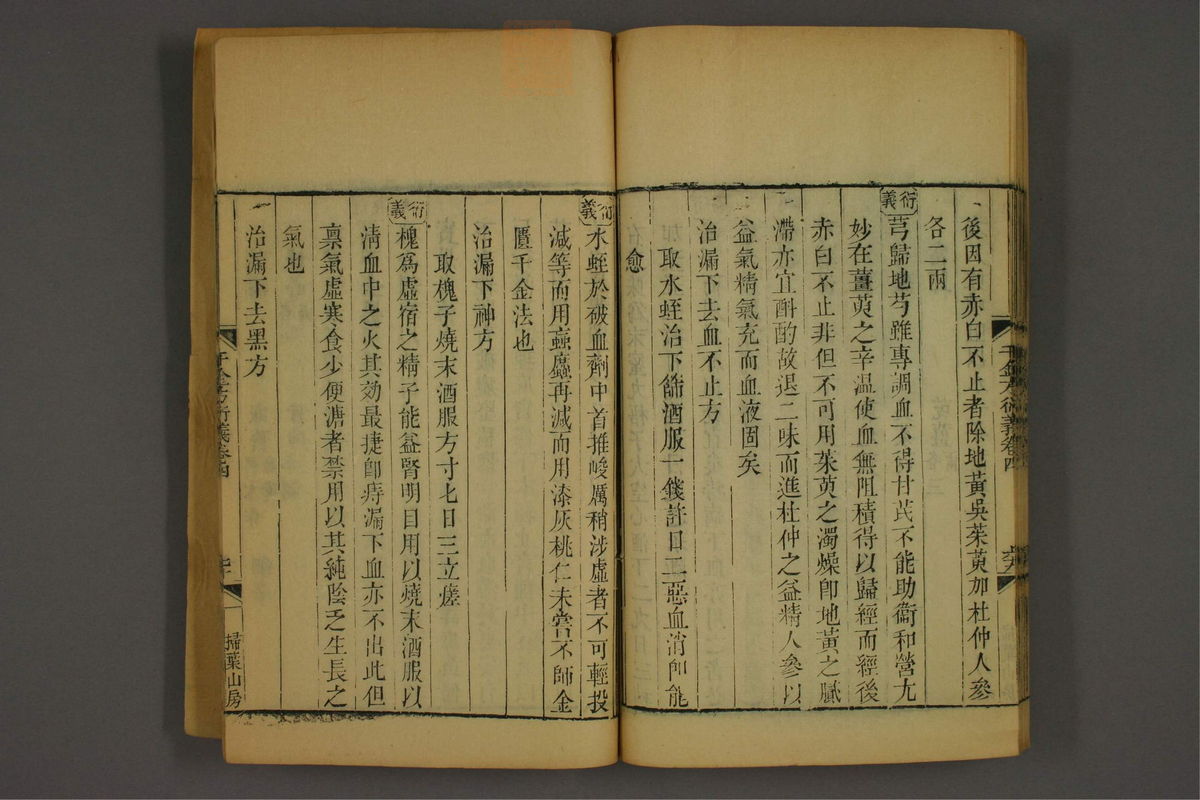 後因有赤白不止者除地黃吳茱萸加杜仲人參
各二兩
衍義 芎歸地芍雖專調血不得甘芪不能助衞和營尢
妙在薑萸之辛温使血無阻積得以歸經而經後
赤白不止非但不可用茱萸之濁燥卽地黃之膩
滯亦宜酙酌故退二味而進杜仲之益精人參以
益氣精氣充而血液固矣
治漏下去血不止方
取水蛭治下篩酒服一錢許日二惡血消卽能
愈
衍義 水蛭於破血劑中首推峻厲稍涉虛者不可輕投
減等而用蝱䗪再減而用漆灰桃仁未嘗不師金
匱千金法也
治漏下神方
取槐子燒末酒服方寸匕日三立瘥
衍義 槐爲虛宿之精子能益腎明目用以燒末酒服以
淸血中之火其効最捷卽痔漏下血亦不出此但
禀氣虛寒食少便溏者禁用以其純陰乏生長之
氣也
一治漏下去黑方
千金方衍義卷四
掃葉山房